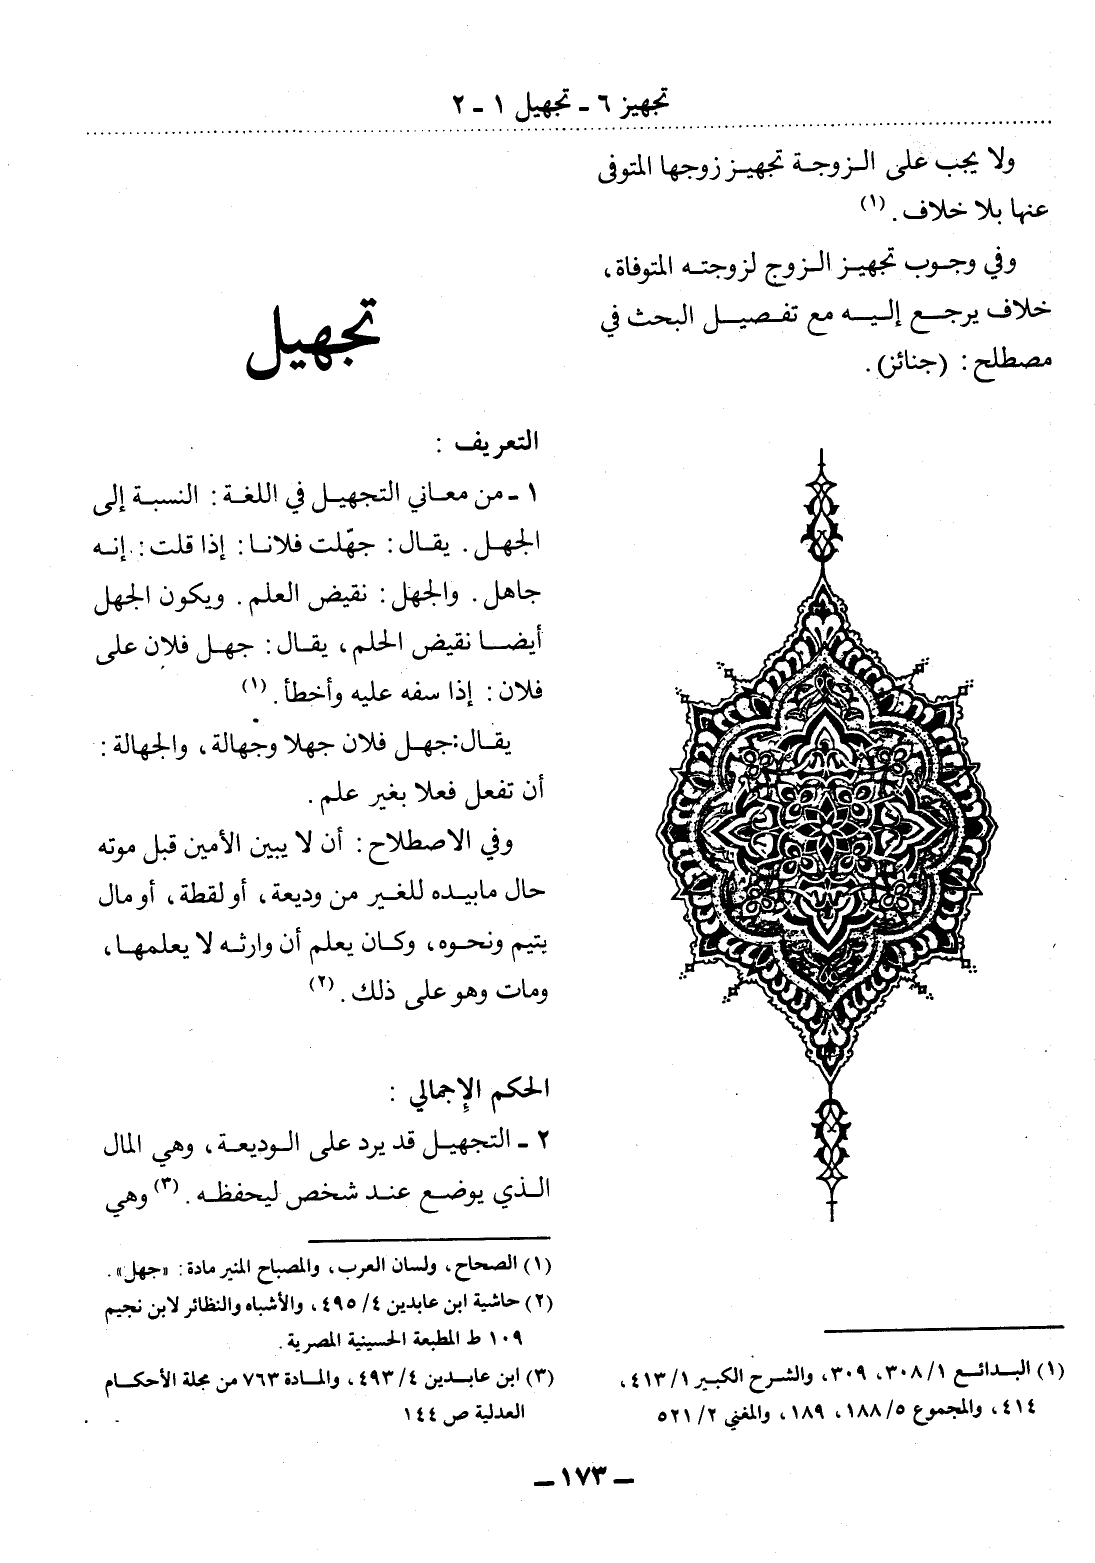 تجهيز ٦ ـ تجهيل ١ - ٢
ولا يجب على الـزوجـة تجهيـز زوجها المتوفى
عنها بلا خلاف . (١)
وفي وجـوب تجهيـز الـزوج لزوجتـه المتوفاة ،
خلاف يرجـع إليـه مع تفـصيـل البحث في
مصطلح : (جنائز) .
(١) البـدائـع ٣٠٨/١، ٣٠٩، والشرح الكبير ٤١٣/١ ،
٤١٤، والمجموع ١٨٨/٥، ١٨٩، والمغني ٥٢١/٢
تجهيل
التعريف :
١ ـ من معـاني التجهيـل في اللغـة : النسبـة إلى
الجهـل . يقـال : جهّلت فلانـا : إذا قلت : إنـه
جاهل . والجهل : نقيض العلم . ويكون الجهل
أيضـا نقيض الحلم ، يقـال : جهـل فلان على
فلان : إذا سفه عليه وأخطأ . (١)
يقـال: جهـل فلان جهلا وجهالة ، والجهالة :
أن تفعل فعلا بغير علم .
وفي الاصطلاح : أن لا يبين الأمين قبل موته
حال مابيـده للغير من وديعة ، أو لقطة ، أو مال
يتيم ونحوه، وكـان يعلم أن وارثـه لا يعلمهـا ،
ومات وهو على ذلك . (٢)
الحكم الإجمالي :
٢ ـ التجهيـل قد يرد على الـوديعـة ، وهي المال
الـذي يوضـع عنـد شخص ليحفظـه . (٣) وهي
(١) الصحاح، ولسان العرب، والمصباح المنير مادة : «جهل» .
(٢) حاشية ابن عابدين ٤ / ٤٩٥ ، والأشباه والنظائر لابن نجيم
١٠٩ ط المطبعة الحسينية المصرية .
(٣) ابن عابـدين ٤ / ٤٩٣ ، والمـادة ٧٦٣ من مجلة الأحكـام
العدلية ص ١٤٤
ـ ١٧٣ ـ